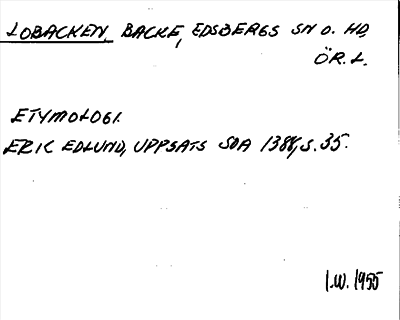 LOBACKEN, BACKE, EDSBERGS SN O. HD,
ÖR. L.
ETYMOLOGI.
ERIC EDLUND, UPPSATS SOA 1388, S. 35.
I.W. 1955